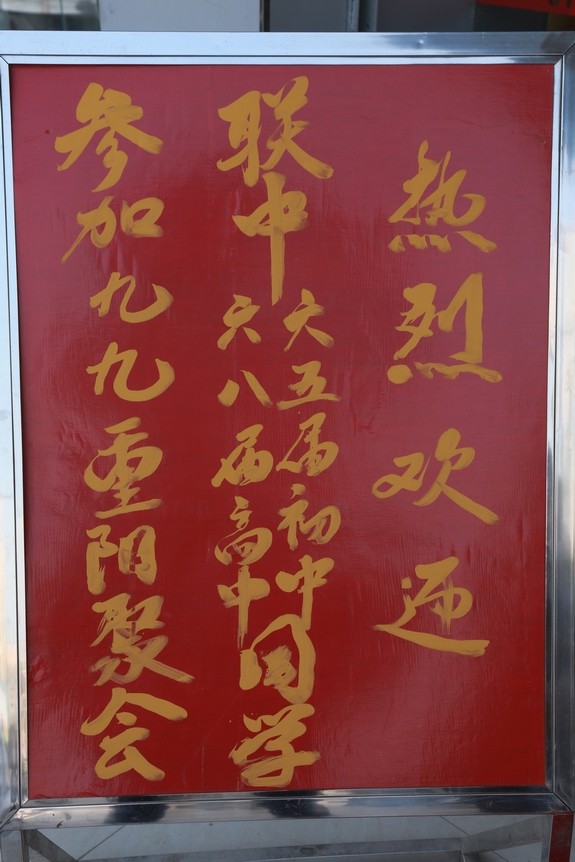 热烈欢迎
联中
六五届初中
六八届高中
同学
参加九九重阳聚会